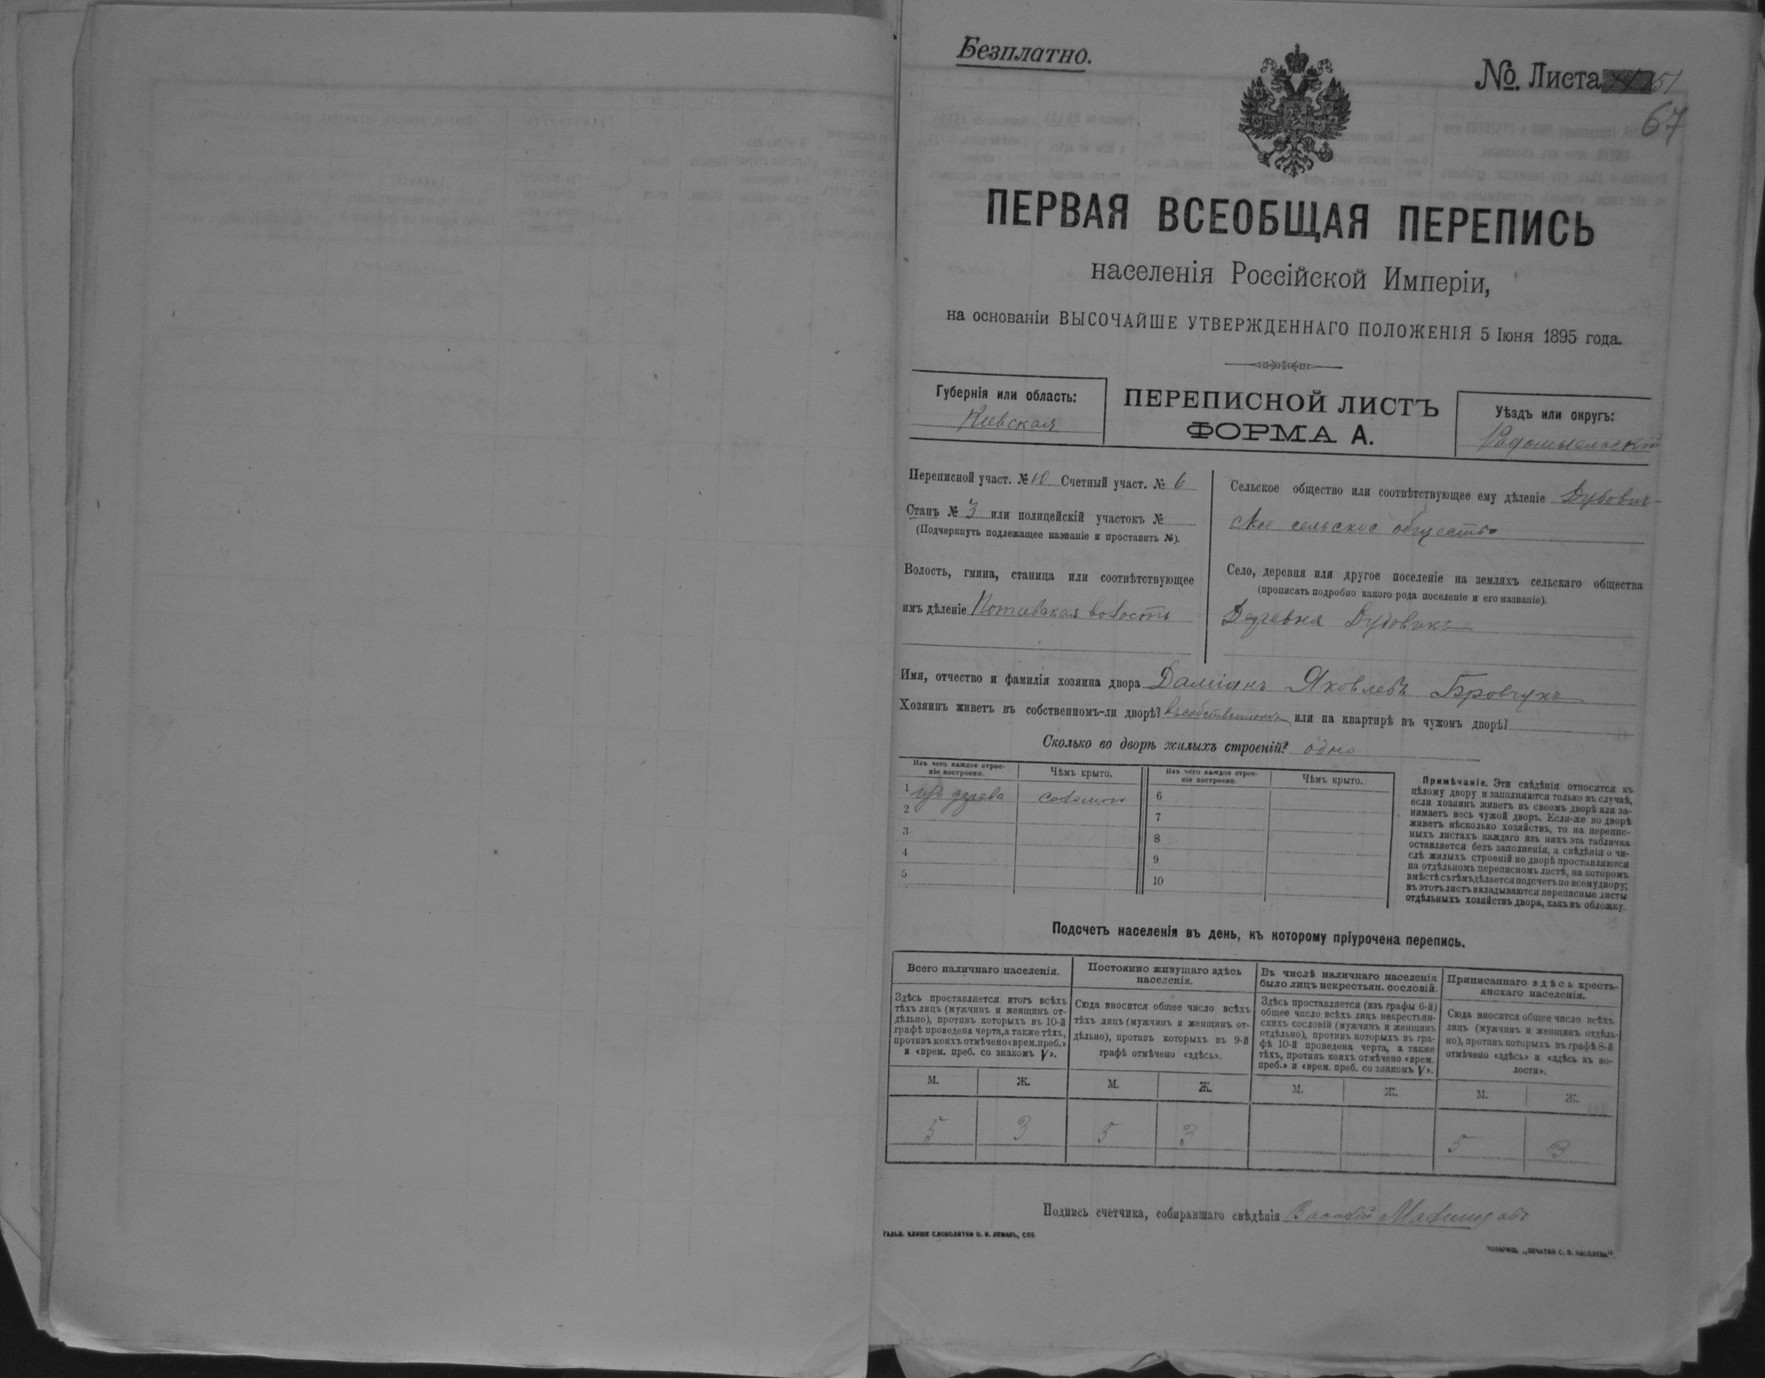 Безплатно.
№. Листа 51
67
ПЕРВАЯ ВСЕОБЩАЯ ПЕРЕПИСЬ
населенія Россійской Имперіи,
на основаніи ВЫСОЧАЙШЕ УТВЕРЖДЕННАГО ПОЛОЖЕНІЯ 5 Іюня 1895 года.
Губернія или область:
Кіевская
ПЕРЕПИСНОЙ ЛИСТЪ
ФОРМА А.
Уѣздъ или округъ:
Радомысльскій
Переписной участ. № 10 Счетный участ. № 6
Станъ № 3 или полицейскій участокъ №
(Подчеркнуть подлежащее названіе и проставить №).
Волость, гмина, станица или соотвѣтствующее
имъ дѣленіе Потіевская волость
Сельское общество или соотвѣтствующее ему дѣленіе Дубович-
ское сельское общество
Село, деревня или другое поселеніе на земляхъ сельскаго общества
(прописать подробно какого рода поселеніе и его названіе).
Деревня Дубовикъ
Имя, отчество и фамилія хозяина двора Даміанъ Яковлевъ Бровчукъ
Хозяинъ живетъ въ собственномъ-ли дворѣ? въ собственномъ или на квартирѣ въ чужомъ дворѣ?
Сколько во дворѣ жилыхъ строеній? одно
Изъ чего каждое строе-
ніе построено.
Чѣмъ крыто.
Изъ чего каждое строе-
ніе построено.
Чѣмъ крыто.
1 изъ дерева соломою 6
2 7
3 8
4 9
5 10
Примѣчаніе. Эти свѣдѣнія относятся къ
цѣлому двору и заполняются только въ случаѣ,
если хозяинъ живетъ въ своемъ дворѣ или за-
нимаетъ весь чужой дворъ. Если-же во дворѣ
живетъ нѣсколько хозяйствъ, то на перепис-
ныхъ листахъ каждаго изъ нихъ эта табличка
оставляется безъ заполненія, а свѣдѣнія о чи-
слѣ жилыхъ строеній во дворѣ проставляются
на отдѣльномъ переписномъ листѣ, на которомъ
вмѣстѣ съ тѣмъ дѣлается подсчетъ по всему двору;
въ этотъ листъ вкладываются переписные листы
отдѣльныхъ хозяйствъ двора, какъ въ обложку.
Подсчетъ населенія въ день, къ которому пріурочена перепись.
Всего наличнаго населенія.
Здѣсь проставляется итогъ всѣхъ
тѣхъ лицъ (мужчинъ и женщинъ от-
дѣльно), противъ которыхъ въ 10-й
графѣ проведена черта, а также тѣхъ,
противъ коихъ отмѣчено «врем. преб.»
и «врем. преб. со знакомъ V».
М. Ж.
5 3
Постоянно живущаго здѣсь
населенія.
Сюда вносится общее число всѣхъ
тѣхъ лицъ (мужчинъ и женщинъ от-
дѣльно), противъ которыхъ въ 9-й
графѣ отмѣчено «здѣсь».
М. Ж.
5 3
Въ числѣ наличнаго населенія
было лицъ некрестьян. сословій.
Здѣсь проставляется (изъ графы 6-й)
общее число всѣхъ лицъ некрестьян-
скихъ сословій (мужчинъ и женщинъ
отдѣльно), противъ которыхъ въ гра-
фѣ 10-й проведена черта, а также
тѣхъ, противъ коихъ отмѣчено «врем.
преб.» и «врем. преб. со знакомъ V».
М. Ж.
Приписаннаго здѣсь кресть-
янскаго населенія.
Сюда вносится общее число всѣхъ
лицъ (мужчинъ и женщинъ отдѣль-
но), противъ которыхъ въ графѣ 8-й
отмѣчено «здѣсь» и «здѣсь къ во-
лости».
М. Ж.
5 3
Подпись счетчика, собиравшаго свѣдѣнія Василій
ГАЛЬВ. КЛИШЕ СЛОВОЛИТНИ О. И. ЛЕМАНЪ, СПБ
ТОВАРИЩ. „ПЕЧАТНЯ С. П. ЯКОВЛЕВА."